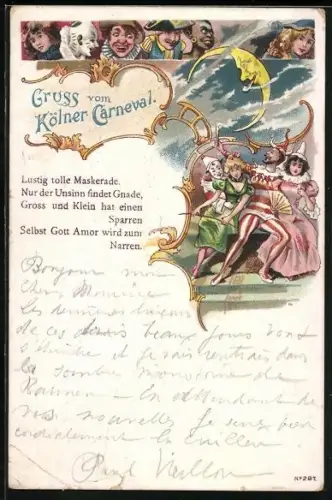 Gruss vom
Kölner Carneval.
Lustig tolle Maskerade.
Nur der Unsinn findet Gnade,
Gross und Klein hat einen
Sparren
Selbst Gott Amor wird zum
Narren.
Bonjour mon
cher
les
de ces beaux jours vont
s'éteindre et je vais rentrer dans
la sombre monotonie de
En attendant de
vos nouvelles je serre bien
cordialement la
Paul
No 281.